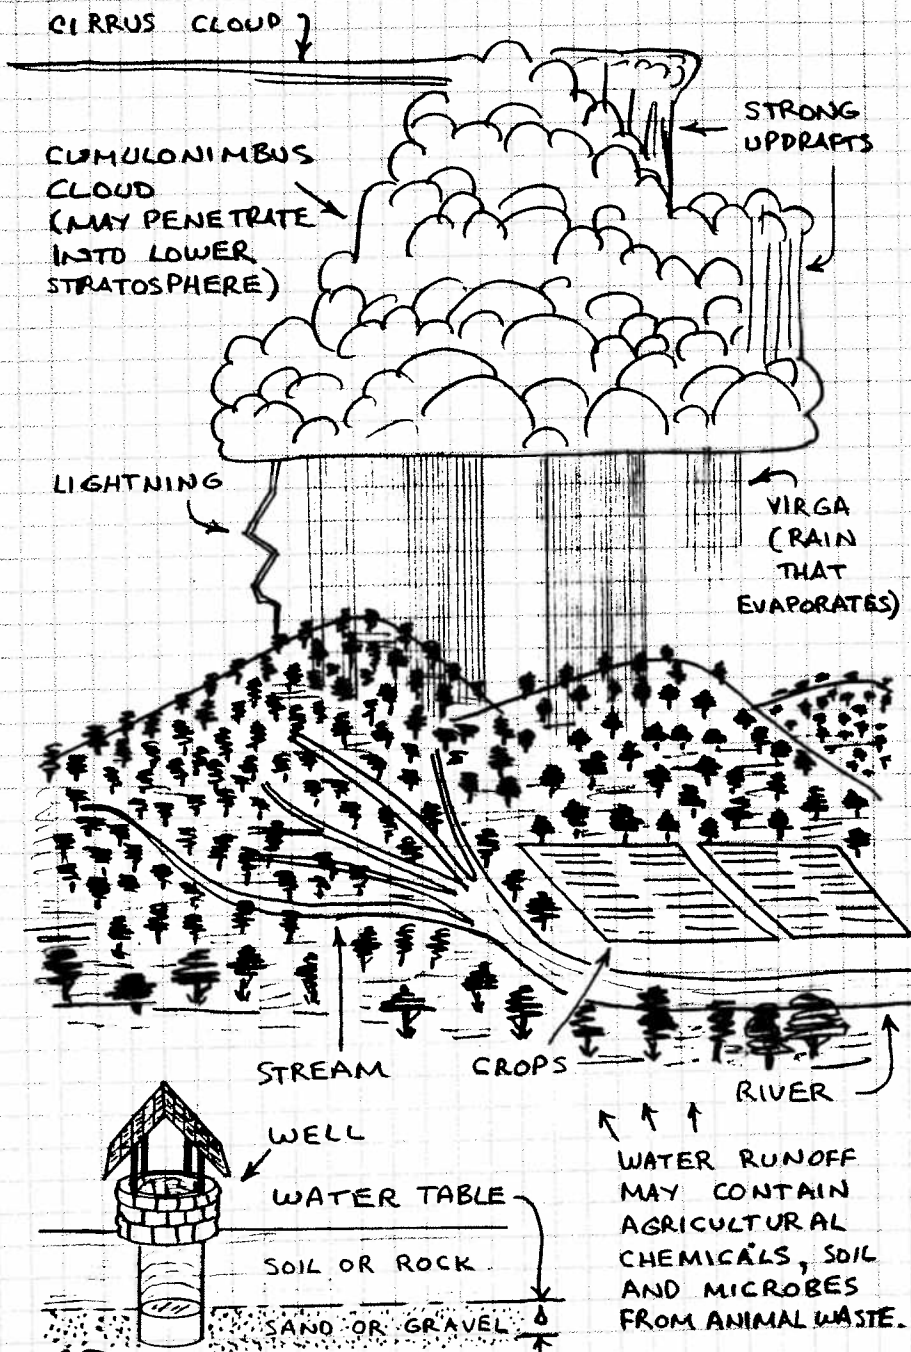 CIRRUS CLOUD
STRONG
UPDRAFTS
CUMULONIMBUS
CLOUD
(MAY PENETRATE
INTO LOWER
STRATOSPHERE)
LIGHTNING
VIRGA
(RAIN
THAT
EVAPORATES)
STREAM
CROPS
RIVER
WELL
WATER TABLE
SOIL OR ROCK
SAND OR GRAVEL
WATER RUNOFF
MAY CONTAIN
AGRICULTURAL
CHEMICALS, SOIL
AND MICROBES
FROM ANIMAL WASTE.